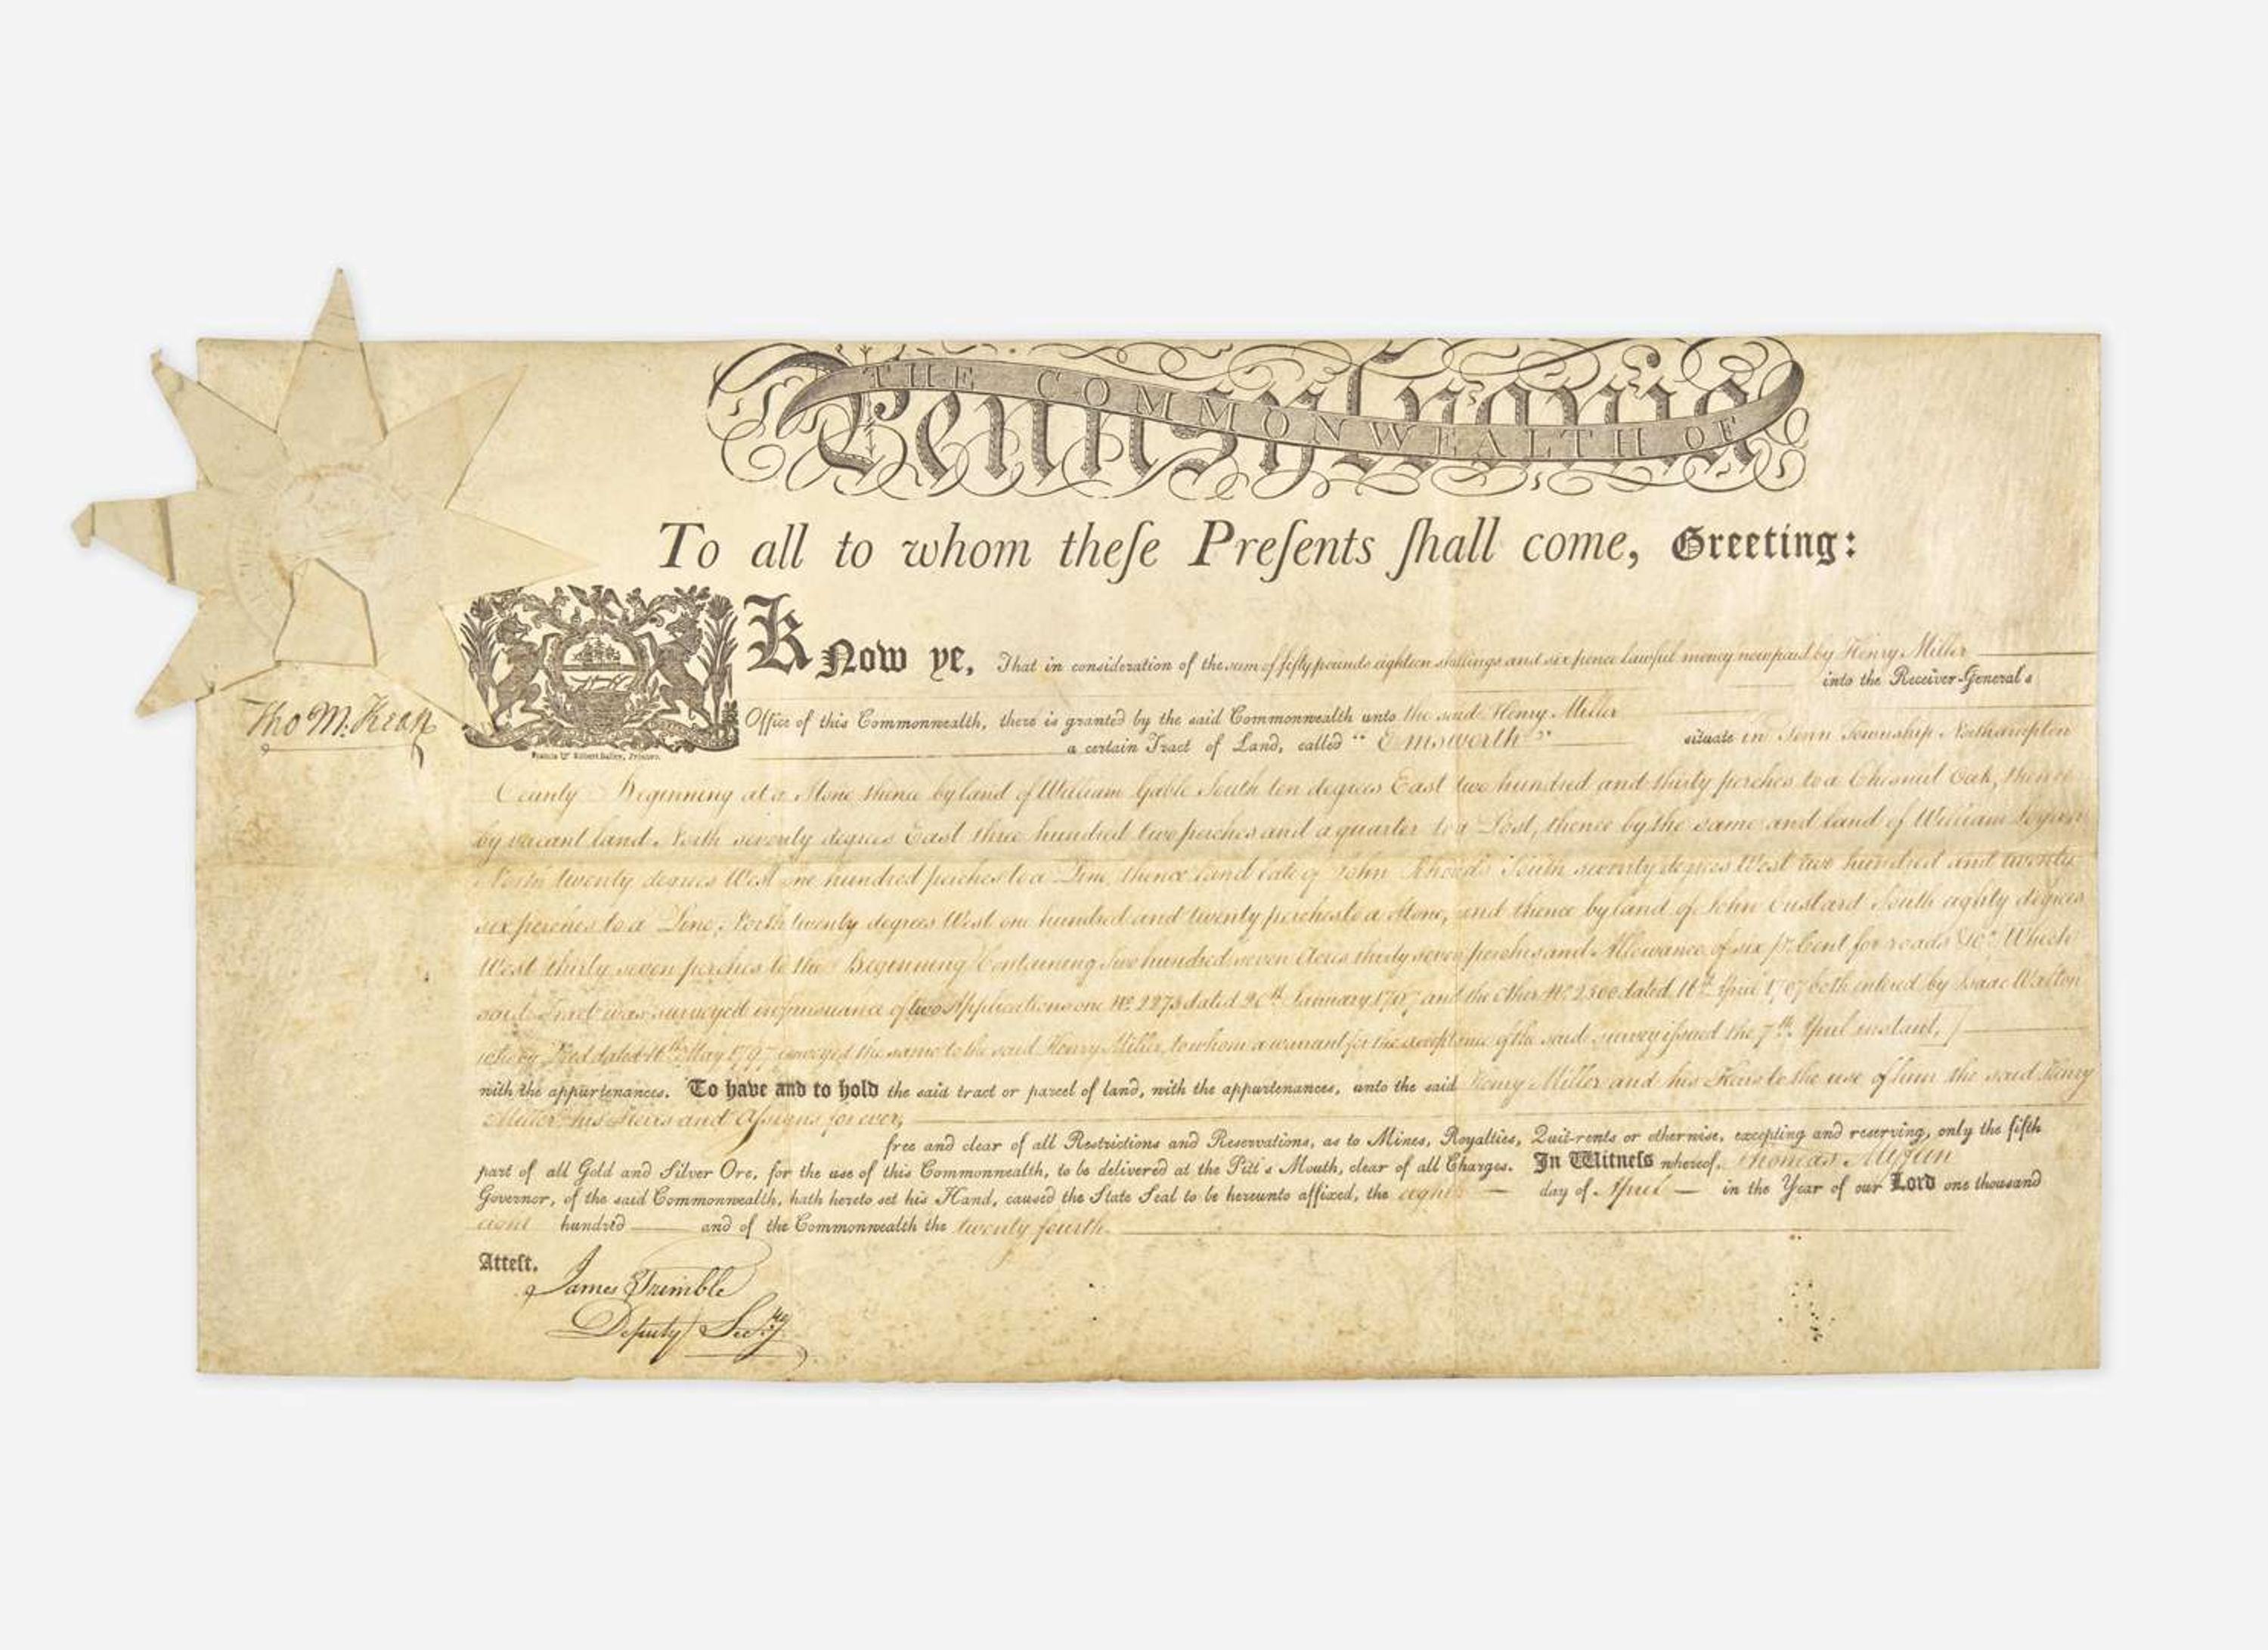 THE COMMONWEALTH OF
Pennsylvania
To all to whom theſe Preſents ſhall come, Greeting:
KNow ye, That in consideration of the sum of fifty pounds eighteen shillings and six pence lawful money now paid by Henry Miller
into the Receiver-General's
Office of this Commonwealth, there is granted by the said Commonwealth unto the said Henry Miller
a certain Tract of Land, called "Emsworth" situate in Penn Township Northampton
Francis & Robert Bailey, Printers.
Tho M:Kean
County Beginning at a Stone thence by land of William Gable South ten degrees East two hundred and thirty perches to a Chesnut Oak, thence
by vacant land North seventy degrees East three hundred two perches and a quarter to a Post, thence by the same and land of William
North twenty degrees West one hundred perches to a Pine, thence land late of John Rhoads South seventy degrees West two hundred and twenty
six perches to a Pine; North twenty degrees West one hundred and twenty perches to a Stone, and thence by land of John Custard South eighty degrees
West thirty seven perches to the Beginning Containing Two hundred seven Acres thirty seven perches and Allowance of six pr. Cent for roads &ca. Which
said Tract was surveyed in pursuance of two Applications one No. 2273 dated 20th January 1767 and the other No. 2500 dated 16th April 1767 both entered by Isaac Walton
who by Deed dated 16th May 1797 conveyed the same to the said Henry Miller, to whom a warrant for the acceptance of the said survey issued the 7th April instant,]
with the appurtenances. To have and to hold the said tract or parcel of land, with the appurtenances, unto the said Henry Miller and his Heirs to the use of him the said Henry
Miller his Heirs and Aſsigns for ever,
free and clear of all Restrictions and Reservations, as to Mines, Royalties, Quit-rents or otherwise, excepting and reserving, only the fifth
part of all Gold and Silver Ore, for the use of this Commonwealth, to be delivered at the Pitt's Mouth, clear of all Charges. In Witneſs whereof, Thomas Mifflin
Governor, of the said Commonwealth, hath hereto set his Hand, caused the State Seal to be hereunto affixed, the eighth day of April in the Year of our Lord one thousand
eight hundred and of the Commonwealth the twenty fourth.
Atteſt.
James Trimble
Deputy Secry